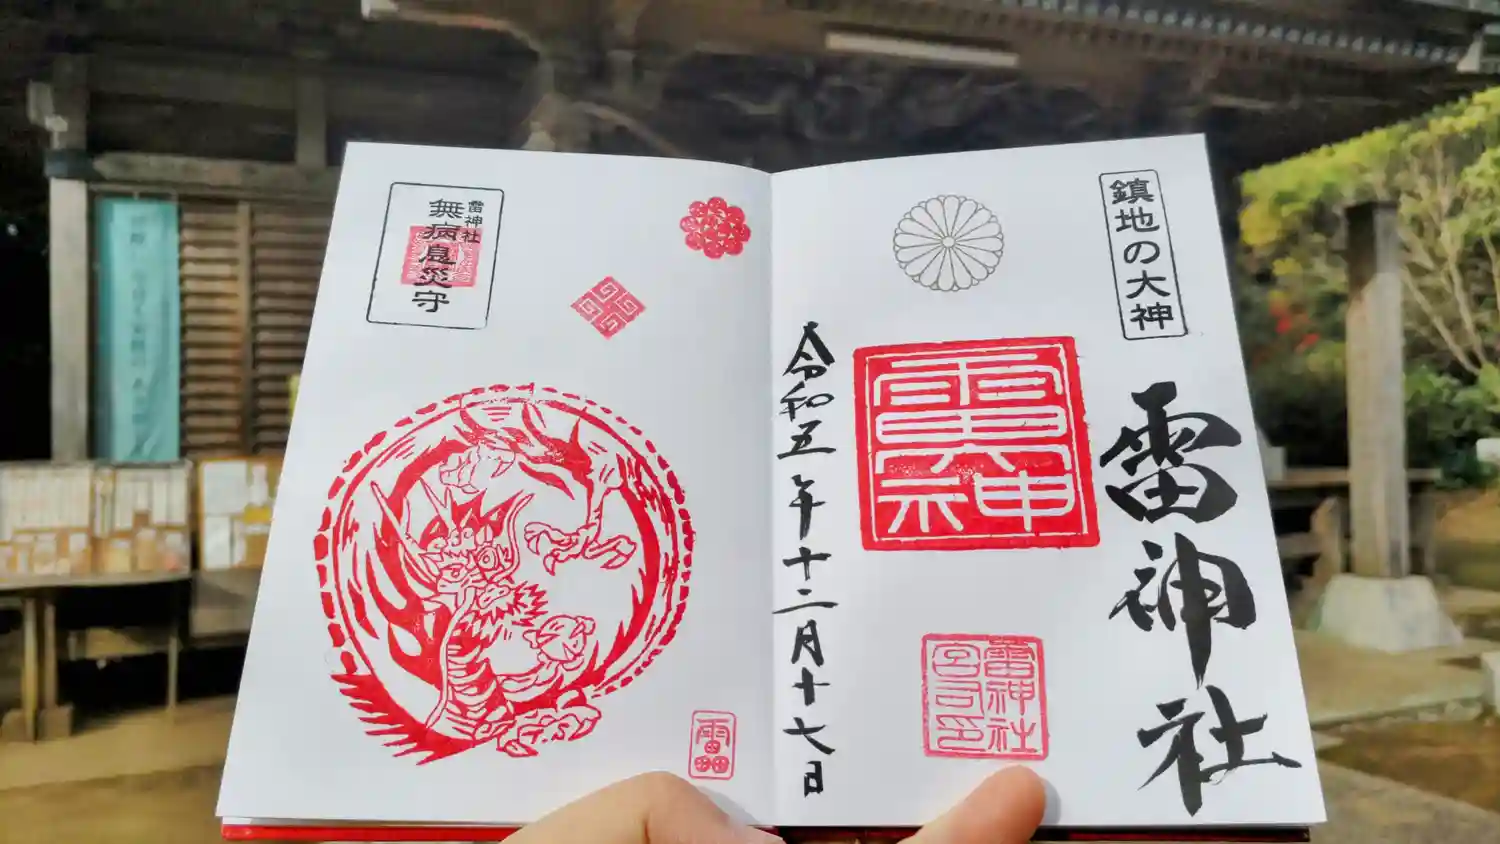 鎮地の大神
雷神社
雷神
雷神社
宮司印
令和五年十二月十七日
雷神社
無病息災守